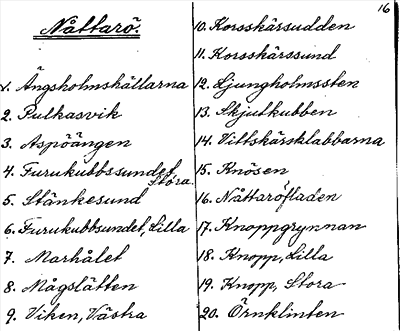 16
Nåttarö.
1. Ängsholmshällarna
2. Pulkasvik
3. Aspöängen
4. Furukubbssundet, Stora.
5. Stänkesund
6. Furukubbsundet, Lilla
7. Marhålet
8. Mågslätten
9. Viken, Västra
10. Korsskärsudden
11. Korsskärssund
12. Ljungholmssten
13. Skjutkubben
14. Vittskärsklabbarna
15. Knösen
16. Nåttaröfladen
17. Knoppgrynnan
18. Knopp, Lilla
19. Knopp, Stora
20. Örnklinten